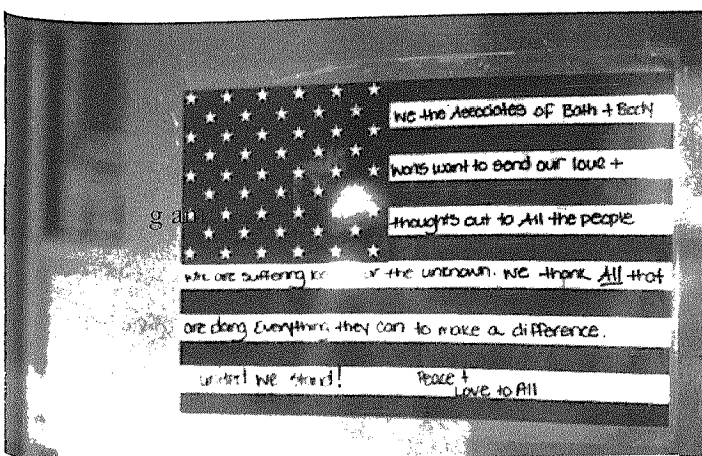 We the Associates of Bath + Body
works want to send our love +
thoughts out to All the people
g an
who are suffering or the unknown. We thank All that
are doing Everything they can to make a difference.
united we stand!
Peace +
Love to All